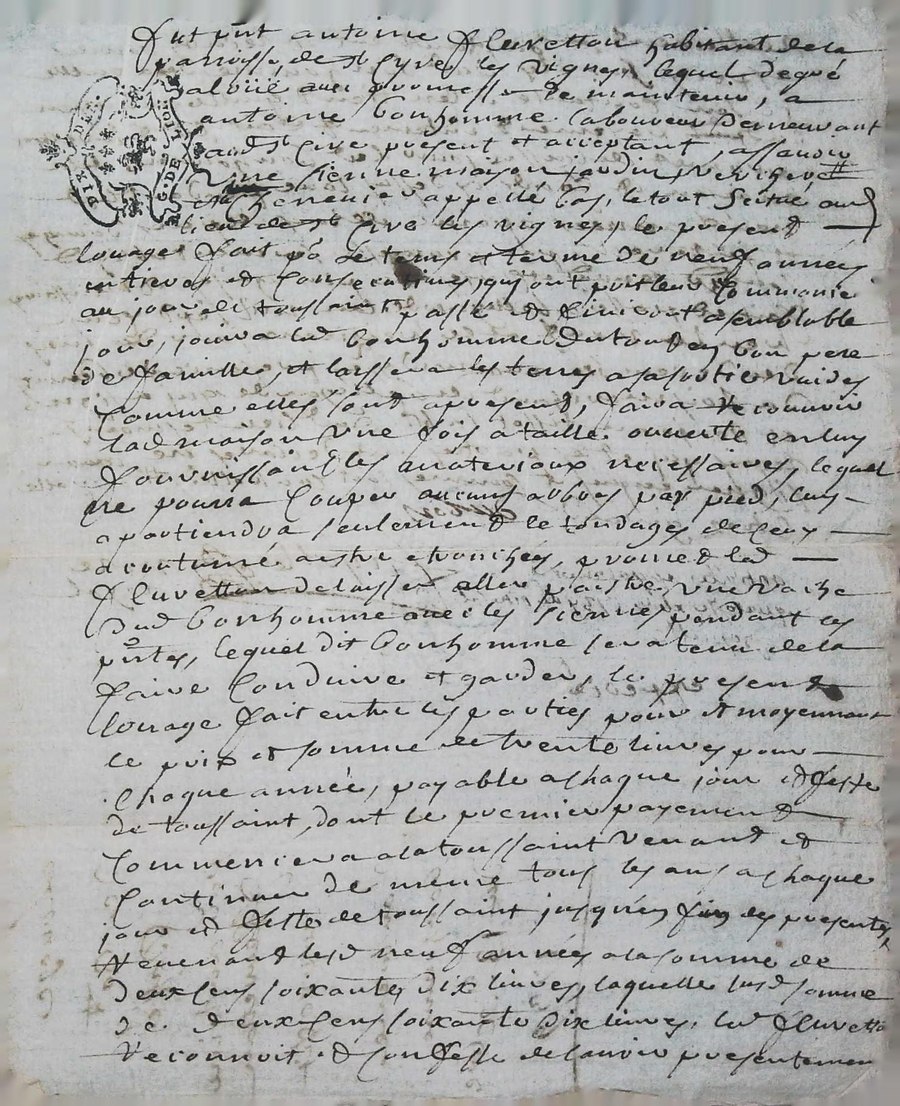 Fut pnt antoine fleuretton habitant de la
parroisse de st Cyre les vignes, lequel de gré
a loüé avec promesse de maintenir, a
antoine bonhomme laboureur demeurant
aud st Cire present et acceptant, assavoir
une sienne maison jardin, verchere #
et chenevier appellé bas, le tout scitué aud
lieu de st Cire les vignes, le present
louage fait po le tems et terme de neuf années
entieres et consecutives, qui ont pris leur commancé
au jour de toussaint passé et finiront a semblable
jour, joüira led bonhomme du tout en bon pere
de famille, et laissera les terres a sa sortie vuides
comme elles sont apresent, faira recouvrir
lad maison une fois a taille ouverte en luy
fournissant les materiaux necessaires, lequel
ne pourra couper aucuns arbres par pied, luy
apartiendra seulement le tondages de ceux
acoutumé aestre etronchés, promet led
fleuretton de laisser aller paistre une vache
dud bonhomme avec les siennes pendant ces
pntes, lequel dit bonhomme sera tenu de la
faire conduire et garder, le present
louage fait entre les parties pour et moyennant
le prix et somme de trente livres pour
chaque année, payable a chaque jour et feste
de toussaint, dont le premier payement
commencera a la toussaint venant et
continuer de meme tous les ans a chaque
jour et feste de toussaint jusqu'en fin des presentes,
revenant lesd neuf années a la somme de
deux cens soixante dix livres, laquelle susd somme
de deux cens soixante dix livres, led fleuretton
reconnoit et confesse de l'avoir presentemen
DIX DEN.
G. DE LION